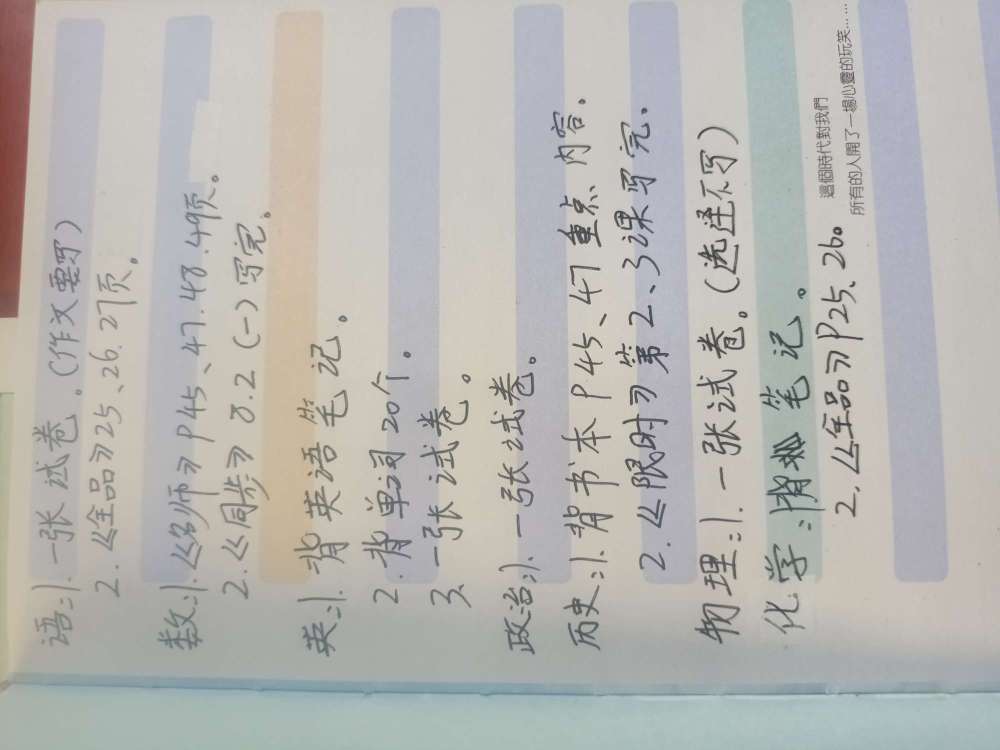 语:1.一张试卷。(作文要写)
2.《全品》25、26.27页。
数:1.《名师》P45、47.48.49页。
2.《同步》8.2(一)写完。
英:1.背英语笔记。
2.背单词20个。
3.一张试卷。
政治:1.一张试卷。
历史:1.背书本P45、47重点内容。
2.《限时》第2、3课写完。
物理:1.一张试卷。(选择不写)
化学:1背笔记。
2.《全品》P25、26。
這個時代對我們
所有的人開了一場心靈的玩笑……